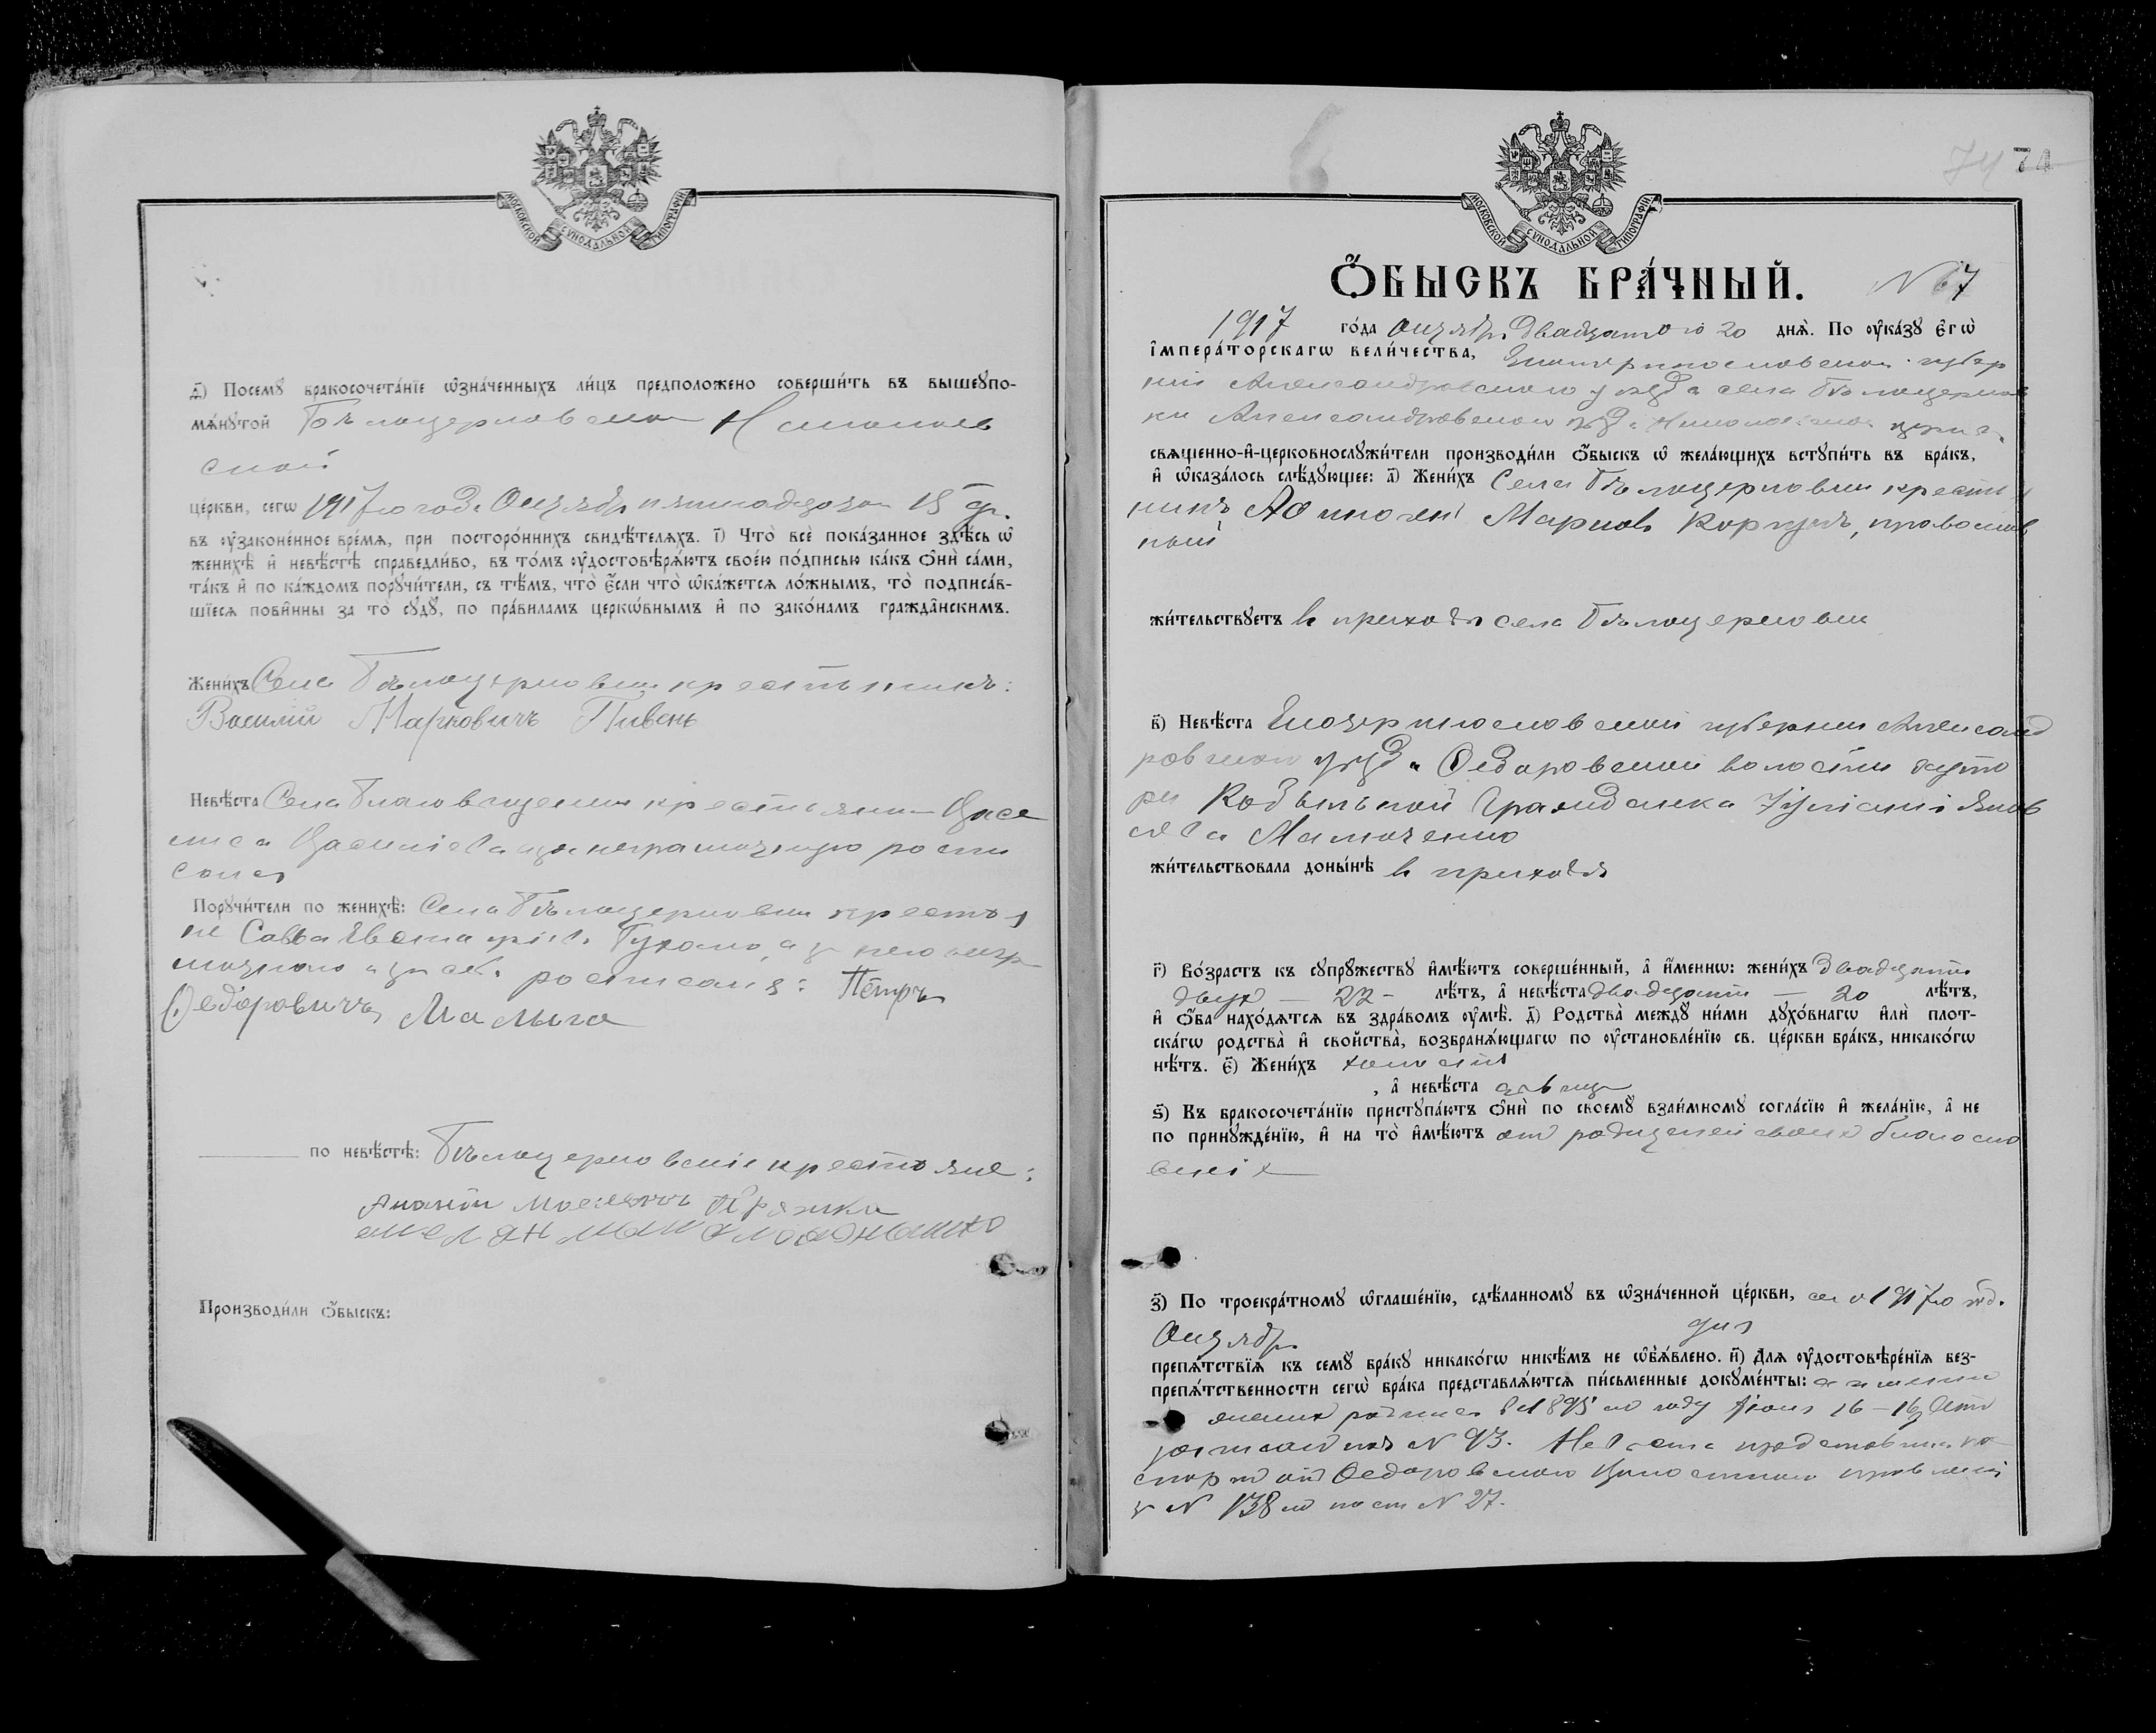 МОСКОВСКОЙ СѴНОДАЛЬНОЙ ТИПОГРАФІИ
д҃і) Посемꙋ бракосочета́нїе ѡ҆зна́ченныхъ ли́цъ предположено соверши́ть въ вышеупо-
мѧ́нꙋтой Бѣлоцерковской Николаев
ской
це́ркви, сегѡ 1917го года Октября пятнадцатаго 15 дн.
въ ᲂу҆зако́не́нное вре́мѧ, при посторо́ннихъ свидѣ́телѧхъ. і҃) Что̀ всѐ пока́занное здѣ́сь ѡ҆
женихѣ̀ и҆ невѣ́стѣ справедли́во, въ то́мъ ᲂу҆достовѣрѧ́ютъ свое́ю по́дписью ка́къ ѻ҆ни̑ са́ми,
та́къ и҆ по ка́ждомъ порꙋчи́тели, съ тѣ́мъ, что̀ є҆́сли что̀ ѡ҆ка́жетсѧ ло́жнымъ, то̀ подписа́в-
шїесѧ пови́нны за то̀ сꙋдꙋ̀, по пра́виламъ церко́внымъ и҆ по зако́намъ гражда́нскимъ.
Жени́хъ Села Бѣлоцерковки крестьянинъ:
Василій Марковичъ Пивень
Невѣ́ста Села Благовѣщенки крестьянка
неграмотную роспи
сался
Порꙋчи́тели по женихѣ̀: Села Бѣлоцерковки крестья
не Савва а за него негра
мотнаго и за себя росписался: Пётръ
Федоровичъ Малыга
по невѣ́стѣ: Бѣлоцерковскіе крестьяне:
Ананій
Производи́ли ѻ҆́быскъ:
74 74
МОСКОВСКОЙ СѴНОДАЛЬНОЙ ТИПОГРАФІИ
Ѻ҆́БЫСКЪ БРА́ЧНЫЙ. N 67
1917 го́да Октября двадцатого 20 днѧ̀. По ᲂу҆ка́зꙋ є҆гѡ̀
і҆мпера́торскагѡ вели́чества, Екатеринославской губер
ніи Александровскаго уѣзда села Бѣлоцерков
ки Александровскаго уѣзда Николаевской церкви
свѧще́нно-и҆-церковнослꙋжи́тели производи́ли ѻ҆́быскъ ѡ҆ жела́ющихъ встꙋпи́ть въ бра́къ,
и҆ ѡ҆каза́лось слѣ́дꙋющее: а҃) Жени́хъ Села Бѣлоцерковки крестья
нинъ Марковъ Коржунъ, православ
ный
жи́тельствꙋетъ в приходѣ села Бѣлоцерковки
в҃) Невѣ́ста Екатеринославской губерніи Александ
ровскаго уѣзда Федоровской волости хуто
ра Кобыльной Гражданка Іуліанія Яков
лева
жи́тельствовала доны́нѣ в приходѣ
г҃) Во́зрастъ къ сꙋпрꙋ́жествꙋ и҆мѣ́ютъ соверше́нный, а҆ и҆́меннѡ: жени́хъ двадцати
двух — 22 — лѣ́тъ, а҆ невѣ́ста двадцати — 20 лѣ́тъ,
и҆ ѻ҆́ба нахо́дѧтсѧ въ здра́вомъ ᲂу҆мѣ̀. д҃) Родства̀ междꙋ ни́ми дꙋхо́внагѡ и҆лѝ плот-
ска́гѡ родства̀ и҆ свойства̀, возбранѧ́ющагѡ по ᲂу҆становле́нїю св. це́ркви бра́къ, никако́гѡ
нѣ́тъ. є҃) Жени́хъ холостъ
, а҆ невѣ́ста дѣвица
ѕ҃) Къ бракосочета́нїю пристꙋпа́ютъ ѻ҆нѝ по своемꙋ̀ взаи́мномꙋ согла́сїю и҆ жела́нїю, а҆ не
по принꙋжде́нїю, и҆ на то̀ и҆мѣ́ютъ от родителей своих благосло
веніе
з҃) По троекра́тномꙋ ѡ҆глаше́нїю, сдѣ́ланномꙋ въ ѡ҆зна́ченной це́ркви, сего 1917го год.
Октября дня
препѧ́тствїѧ къ семꙋ̀ бра́кꙋ никако́гѡ никѣ́мъ не ѡ҆б̾ѧ́влено. и҃) Длѧ ᲂу҆достовѣре́нїѧ без-
препѧ́тственности сегѡ̀ бра́ка представлѧ́ютсѧ пи́сьменные докꙋме́нты: а именно
жених родился в 1895 м году 16 — 16
N 93. Невѣста представила па
спорт от Федоровскаго Волостнаго правленія
за N 138 N 27.